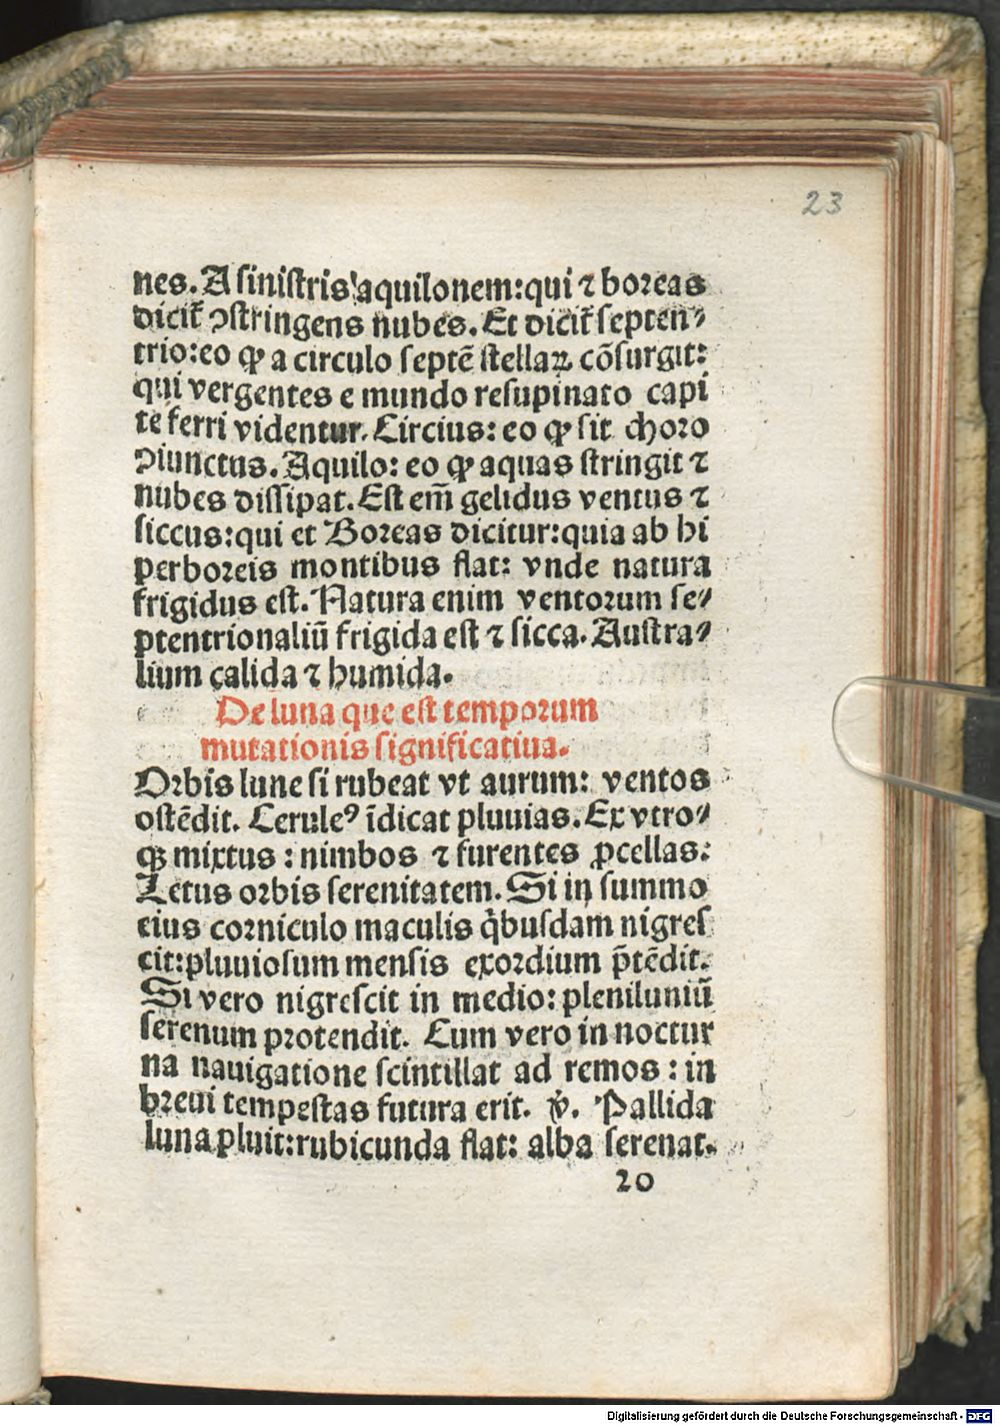 23
nes. A siniſtris aquilonem: qui ⁊ boꝛeas
dicit̃ ꝯſtringens nubes. Et dicit̃ ſepten⸗
trio: eo ꝙ a circulo ſeptē ſtellaꝝ cōſurgit:
qui vergentes e mundo reſupinato capi
te ferri videntur. Circius: eo ꝙ ſit choꝛo
ꝯiunctus. Aquilo: eo ꝙ aquas ſtringit ⁊
nubes diſſipat. Eſt em̄ gelidus ventus ⁊
ſiccus: qui et Boꝛeas dicitur: quia ab hi
perboꝛeis montibus flat: vnde natura
frigidus eſt. Natura enim ventoꝛum ſe⸗
ptentrionaliū frigida eſt ⁊ ſicca. Auſtra⸗
lium calida ⁊ humida.
De luna que eſt tempoꝛum
mutationis ſignificatiua.
Oꝛbis lune ſi rubeat vt aurum: ventos
oſtēdit. Ceruleꝰ īdicat pluuias. Ex vtro⸗
qꝫ mixtus: nimbos ⁊ furentes ꝓcellas:
Letus oꝛbis ſerenitatem. Si in ſummo
eius coꝛniculo maculis q̇buſdam nigreſ
cit: pluuioſum menſis exoꝛdium p̄tēdit.
Si vero nigreſcit in medio: pleniluniū
ſerenum pꝛotendit. Cum vero in noctur
na nauigatione ſcintillat ad remos: in
bꝛeui tempeſtas futura erit. ℣. Pallida
luna pluit: rubicunda flat: alba ſerenat.
20
Digitalisierung gefördert durch die Deutsche Forschungsgemeinschaft - DFG